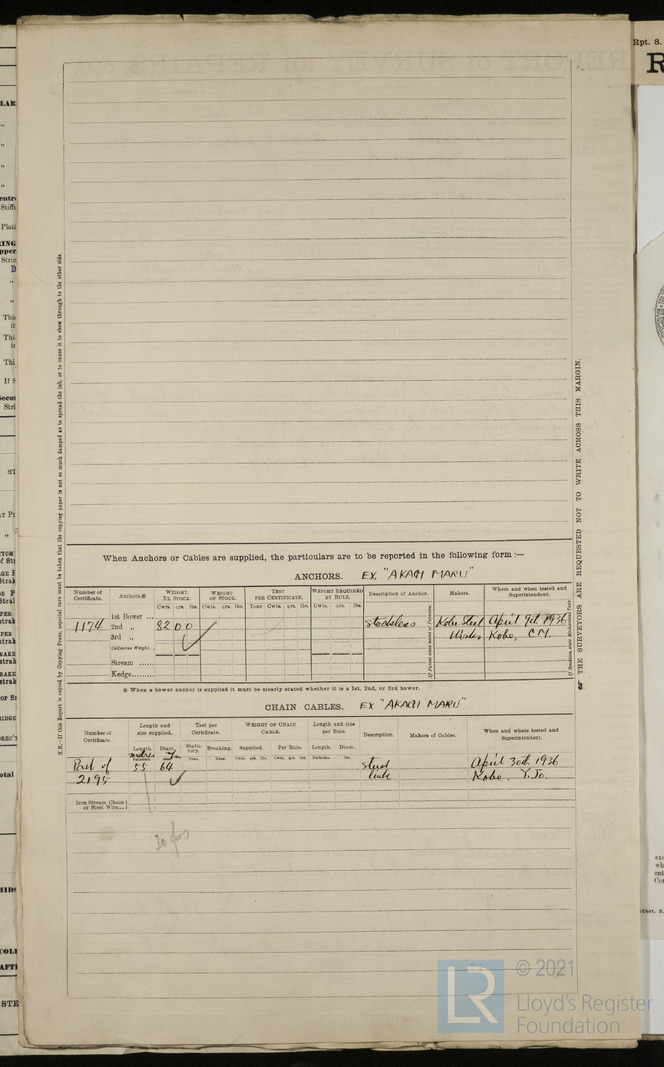 Rpt. 8.
R
N.B.—If this Report is copied by Copying Press, especial care must be taken that the copying paper is not so much damped as to spread the ink, or to cause it to show through to the other side.
THE SURVEYORS ARE REQUESTED NOT TO WRITE ACROSS THIS MARGIN.
When Anchors or Cables are supplied, the particulars are to be reported in the following form :—
ANCHORS. EX "AKAGI MARU"
Number of Certificate. Anchors.※ WEIGHT, EX. STOCK. WEIGHT OF STOCK. TEST PER CERTIFICATE. WEIGHT REQUIRED BY RULE. Description of Anchor. Makers. Where and when tested and Superintendent.
Cwts. qrs. lbs. Cwts. qrs. lbs. Tons Cwts. qrs. lbs. Cwts. qrs. lbs.
1st Bower ...
1174 2nd „ 82 0 0 Stockless Kobe Steel April 9th 1936
3rd „ Works Kobe, C M.
Collective Weight
Stream ......
Kedge........
If Patent state name of Patentee.
※ When a bower anchor is supplied it must be clearly stated whether it is a 1st, 2nd, or 3rd bower.
CHAIN CABLES. EX "AKAGI MARU"
Number of Certificate Length and size supplied. Test per Certificate. WEIGHT OF CHAIN CABLE. Length and size per Rule. Description. Makers of Cables. When and where tested and Superintendent.
Length. Diam. Statutory. Breaking. Supplied. Per Rule. Length. Diam.
metres
Part of 55 64 Stud April 30th 1936
2195 link Kobe, Y. Jo.
Iron Stream Chain or Steel Wire....
© 2021
LR
Lloyd's Register
Foundation